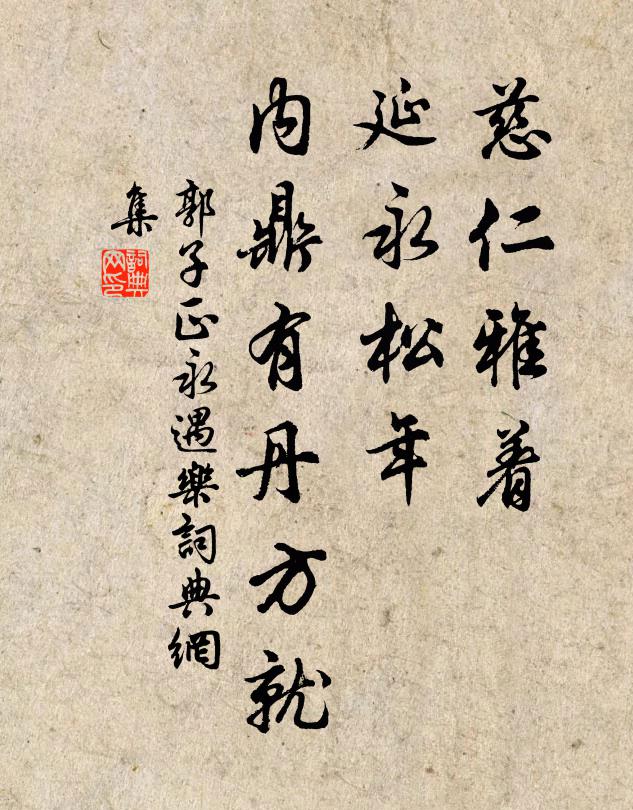 慈仁雅着
延永松年
内鼎有丹方就
郭子正永遇樂詞典網
集
詞典
网印